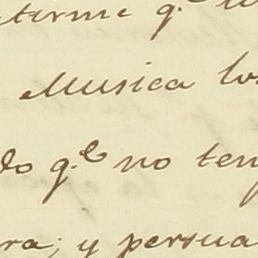 terme q.e
Musica los
do q.e no ten
ra; y persua